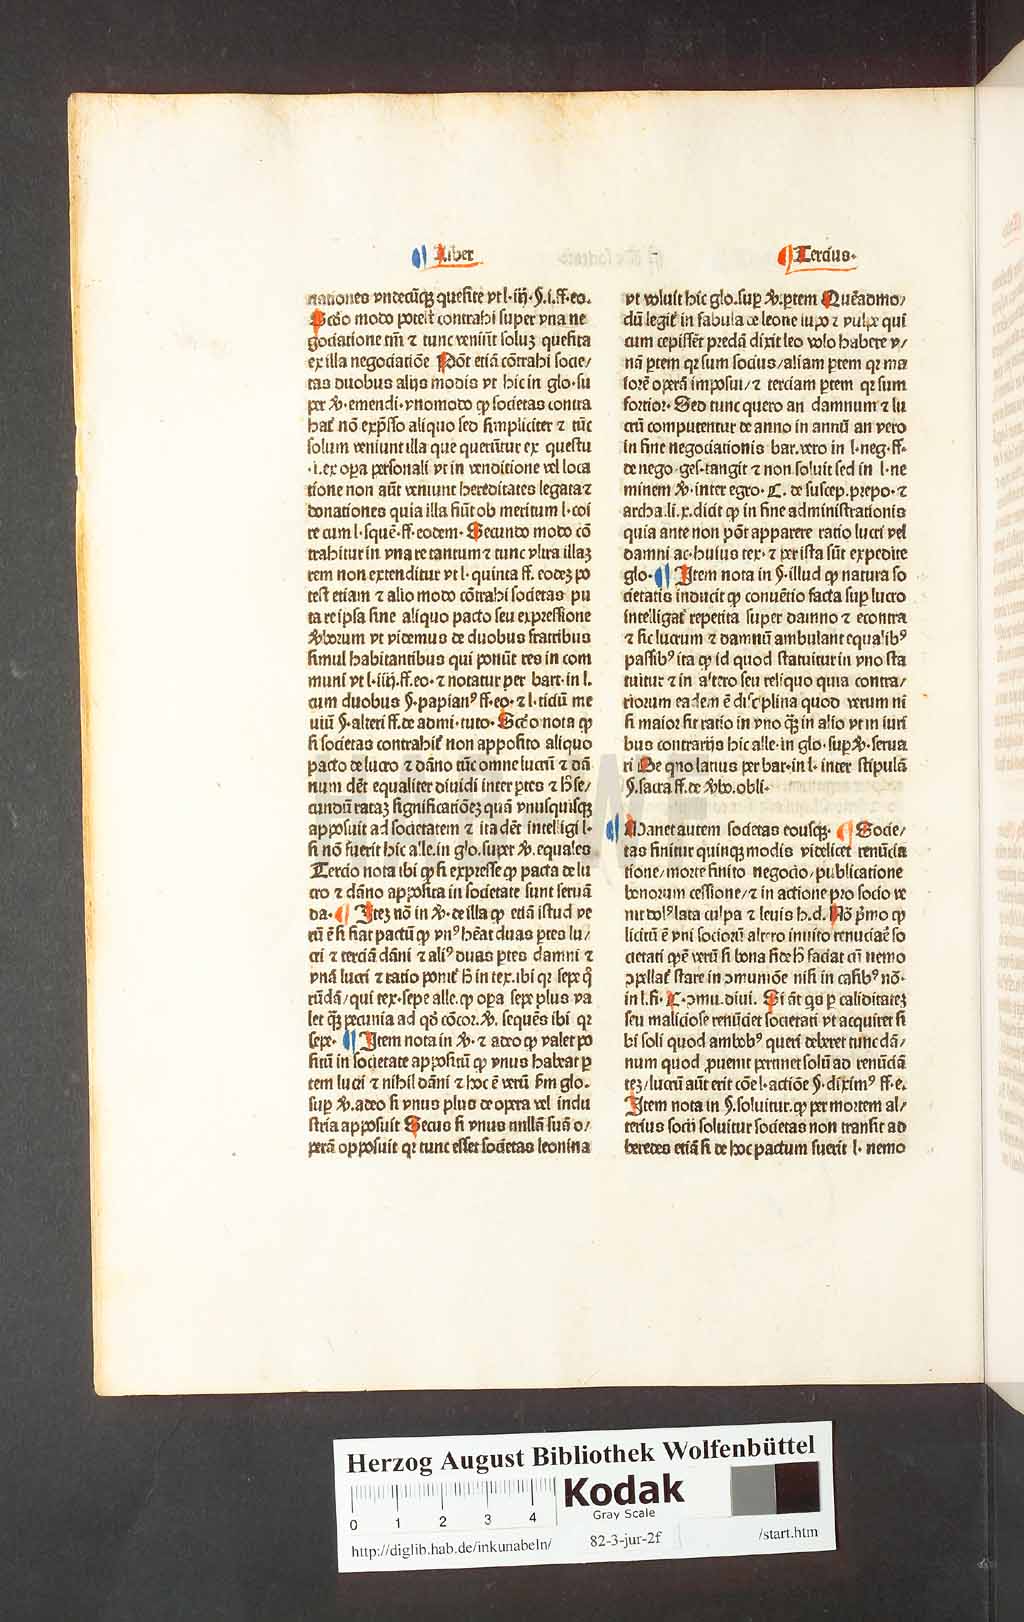 Liber
Tercius.
nationes vndecūq̃ quesite vt l. iij. §. i. ff. eo.
Scd̓o modo potest contrahi super vna ne
gociatione tm̄ ⁊ tunc veniūt soluꝫ quesita
ex illa negociatiōe Pōt etiā cōtrahi socie/
tas duobus alijs modis vt hic in glo. su
per v̓. emendi. vnomodo ꝙ societas contra
hat̄ nō exp̄sso aliquo sed simpliciter ⁊ tūc
solum veniunt illa que querūtur ex questu
.i. ex oꝑa personali vt in venditione vel loca
tione non aūt veniunt hereditates legata ⁊
donationes quia illa fiūt ob meritum l. coi
re cum l. sequē. ff. eodem. Secundo modo cō
trahitur in vna re tantum ⁊ tunc vltra illaꝫ
rem non extenditur vt l. quinta ff. eodeꝫ po
test etiam ⁊ alio modo cōtrahi societas pu
ta re ipsa sine aliquo pacto seu expressione
v̓borum vt videmus de duobus fratribus
simul habitantibus qui ponūt res in com
muni vt l. iiij. ff. eo. ⁊ notatur per bart. in l.
cum duobus §. papianꝰ ff. eo. ⁊ l. ticiū me
uiū §. alteri ff. de admi. tuto. Scd̓o nota ꝙ
si societas contrahit̄ non apposito aliquo
pacto de lucro ⁊ dāno tūc omne lucrū ⁊ dā
num dēt equaliter diuidi inter ꝑtes ⁊ h̓ se/
cundū rataꝫ significatiōeꝫ quā vnusquisqꝫ
apposuit ad societatem ⁊ ita dēt intelligi l.
si nō fuerit hic alle. in glo. super v̓. equales
Tercio nota ibi ꝙ si expresse ꝙ pacta de lu
cro ⁊ dāno apposita in societate sunt seruā
da. Iteꝫ nō in v̓. de illa ꝙ etiā istud ve
rū ē si fiat pactū ꝙ vnꝰ hēat duas ꝑtes lu/
cri ⁊ terciā dāni ⁊ aliꝰ duas ꝑtes damni ⁊
vnā lucri ⁊ ratio ponit̄ h̓ in tex. ibi qr sepe q̄
rūdā/ qui tex. sepe alle. ꝙ opa sepe plus va
let q̄ꝫ pecunia ad qd̓ cōcor. v̓. sequēs ibi qr
sepe. Item nota in v̓. ⁊ adeo ꝙ valet po
sitū in societate appositū ꝙ vnus habeat ꝑ
tem lucri ⁊ nihil dāni ⁊ hoc ē verū sm̄ glo.
suꝑ v̓. adeo si vnus plus de opera vel indu
stria apposuit Secus si vnus nullā suā o/
perā opposuit qr tunc esset societas leonina
vt voluit hic glo. suꝑ v̓. ꝑtem Quēadmo/
dū legit̄ in fabula de leone lupo ⁊ vulpe qui
cum cepissēt predā dixit leo volo habere v/
nā ꝑtem qr sum socius/ aliam ꝑtem qr ma
iorē operā imposui/ ⁊ terciam ꝑtem qr sum
fortior. Sed tunc quero an damnum ⁊ lu
crū computentur de anno in annū an vero
in fine negociationis bar. vero in l. neg. ff.
de nego. ges. tangit ⁊ non soluit sed in l. ne
minem v̓. inter egro. C. de suscep. prepo. ⁊
archa. li. x. dicit ꝙ in fine administrationis
quia ante non pōt apparere ratio lucri vel
damni ac. huius tex. ⁊ per ista sūt expedite
glo. Item nota in §. illud ꝙ natura so
cietatis inducit ꝙ conuētio facta suꝑ lucro
intelligat̄ repetita super damno ⁊ econtra
⁊ sic lucrum ⁊ damnū ambulant equalibꝰ
passibꝰ ita ꝙ id quod statuitur in vno sta
tuitur ⁊ in altero seu reliquo quia contra/
riorum eadem ē disciplina quod verum ni
si maior sit ratio in vno q̄ꝫ in alio vt in iuri
bus contrarijs hic alle. in glo. suꝑ v̓. serua
ri De quo latius per bar. in l. inter stipulā
§. sacra ff. de v̓bo. obli.
Manet autem societas eousqꝫ. Socie/
tas finitur quinqꝫ modis videlicet renūcia
tione/ morte finito negocio/ publicatione
bonorum cessione/ ⁊ in actione pro socio ve
nit dolꝰ lata culpa ⁊ leuis h. d. Nō p̄mo ꝙ
licitū ē vni sociorū altero inuito renūciare so
cietati qd̓ ē verū si bona fide h̓ faciat cū nemo
ꝯpellat̄ stare in ꝯmuniōe nisi in casibꝰ nō.
in l. fi. C. ꝯmu. diui. Si āt qs ꝑ caliditateꝫ
seu maliciose renūciet societati vt acquiret si
bi soli quod ambobꝰ queri deberet tunc dā/
num quod ꝓuenit pertinet solū ad renūciā
teꝫ/ lucrū aūt erit cōe l. actiōe §. diximꝰ ff. e.
Item nota in §. soluitur. ꝙ per mortem al/
terius socii soluitur societas non transit ad
heredes etiā si de hoc pactum fuerit l. nemo
Herzog August Bibliothek Wolfenbüttel
0 1 2 3 4
Kodak
Gray Scale
http://diglib.hab.de/inkunabeln/ 82-3-jur-2f /start.htm